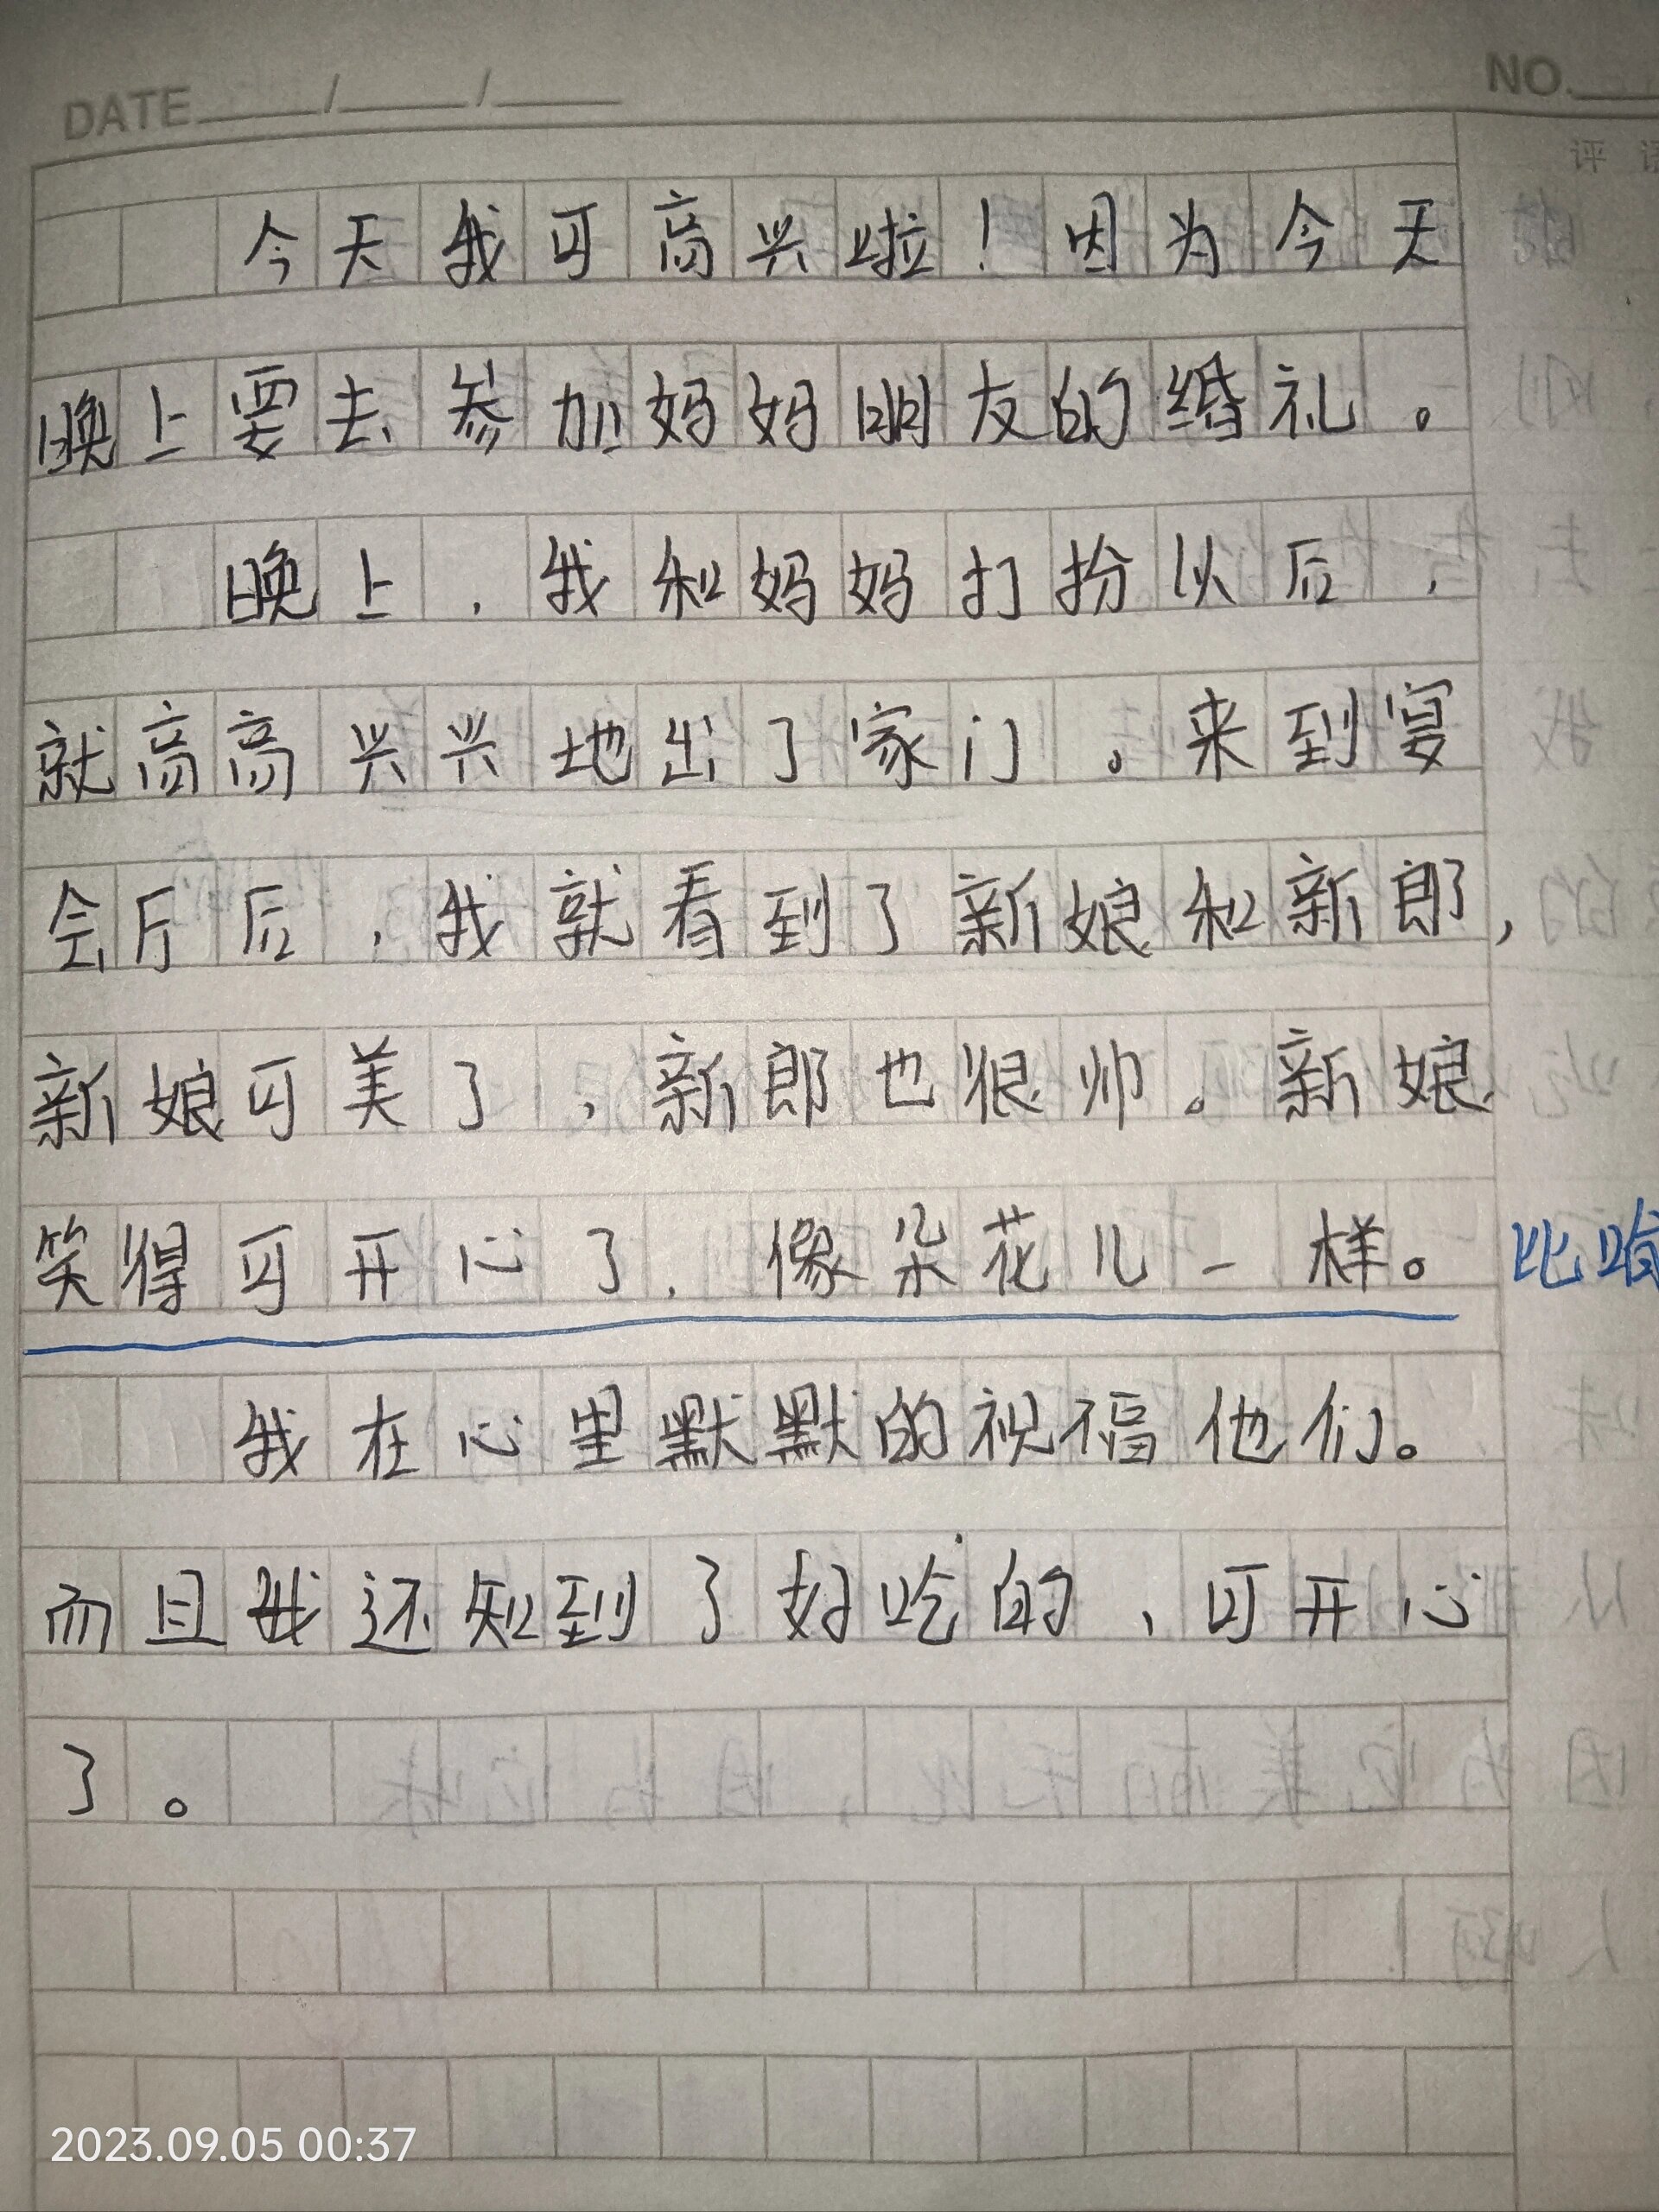 DATE / /
NO.
评
今天我可高兴啦！因为今天
晚上要去参加妈妈朋友的婚礼。
晚上，我和妈妈打扮以后，
就高高兴兴地出了家门。来到宴
会厅后，我就看到了新娘和新郎，
新娘可美了，新郎也很帅。新娘
笑得可开心了，像朵花儿一样。 比喻
我在心里默默的祝福他们。
而且我还知到了好吃的，可开心
了。
2023.09.05 00:37